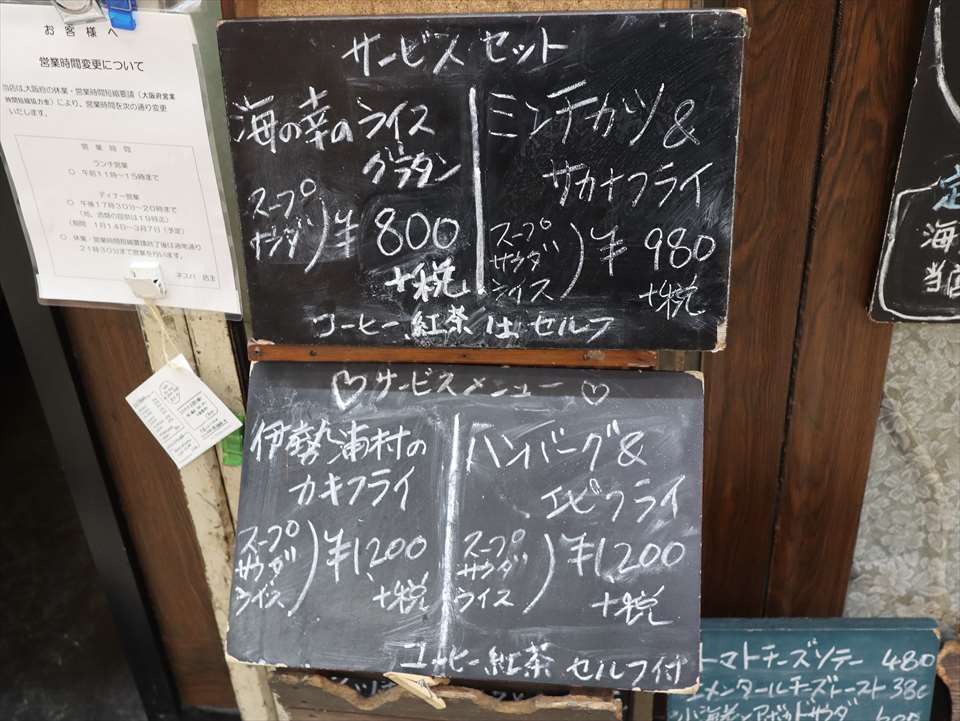 お客様へ
営業時間変更について
当店は、大阪府の休業・営業時間短縮要請（大阪府営業
時間短縮協力金）により、営業時間を次の通り変更
いたします。
営業時間
ランチ営業
○ 午前11時～15時まで
ディナー営業
○ 午後17時30分～20時まで
（尚、酒類の提供は19時迄）
（期間 1月14日～3月7日（予定）
○ 休業・営業時間短縮要請終了後は通常通り
21時30分まで営業を行います。
ネスパ 店主
サービスセット
海の幸のライス
グラタン
スープ
サラダ
¥800
+税
ミンチカツ&
サカナフライ
スープ
サラダ
ライス
¥980
+税
コーヒー、紅茶はセルフ
♡サービスメニュー♡
伊勢浦村の
カキフライ
スープ
サラダ
ライス
¥1200
+税
ハンバーグ&
エビフライ
スープ
サラダ
ライス
¥1,200
+税
コーヒー紅茶セルフ付
定
海
当店
トマトチーズソテー 480
エメンタールチーズトースト 380
小海老とアボカドサラダ